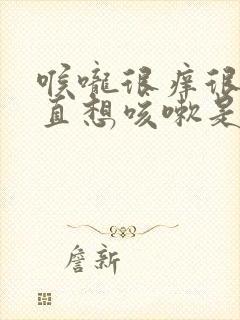 喉嚨很痒很
直想咳嗽是
詹新